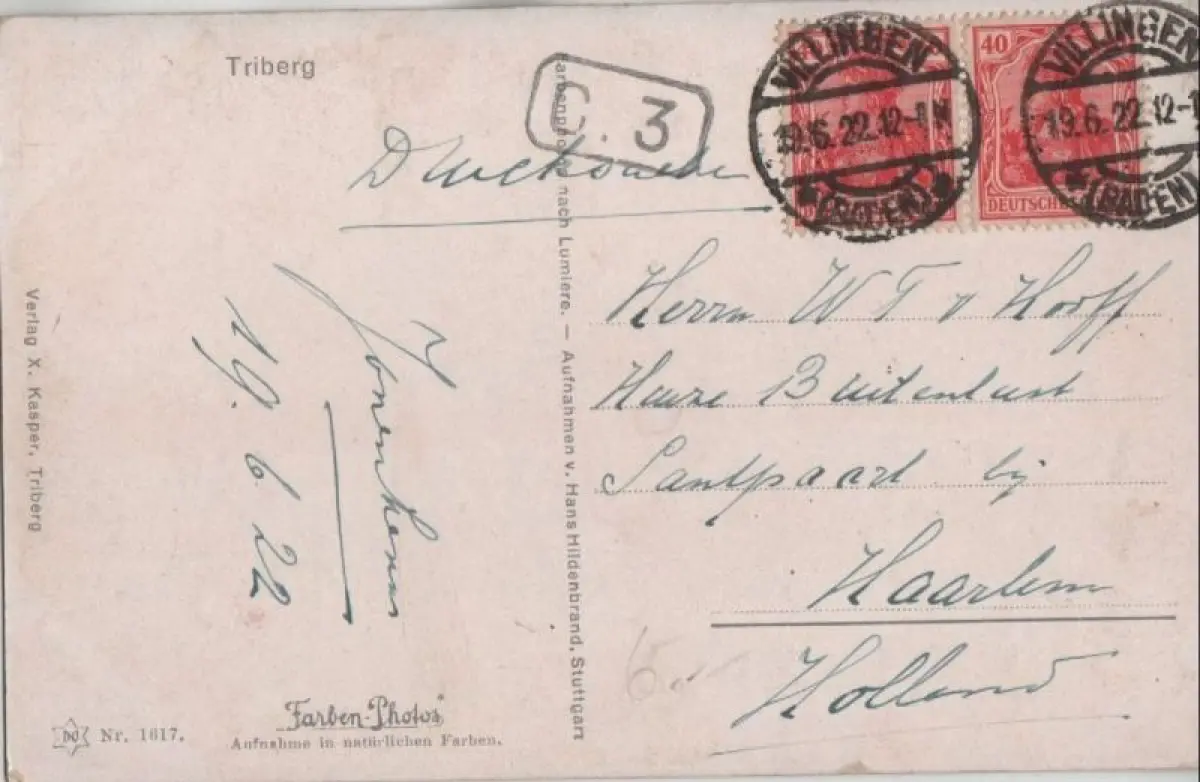 Triberg
C. 3
VILLINGEN
19.6.22.12-1 N
(BADEN)
40
DEUTSCHES
VILLINGEN
19.6.22.12-1
(BADEN)
Drucksache
Herrn W T v Hooff
Huize Buitenlust
Santpoort bij
Haarlem
Holland
19. 6 22
Farbenphotos nach Lumiere. — Aufnahmen v. Hans Hildenbrand, Stuttgart
Verlag X. Kasper, Triberg
Farben-Photos
Aufnahme in natürlichen Farben.
Nr. 1617.